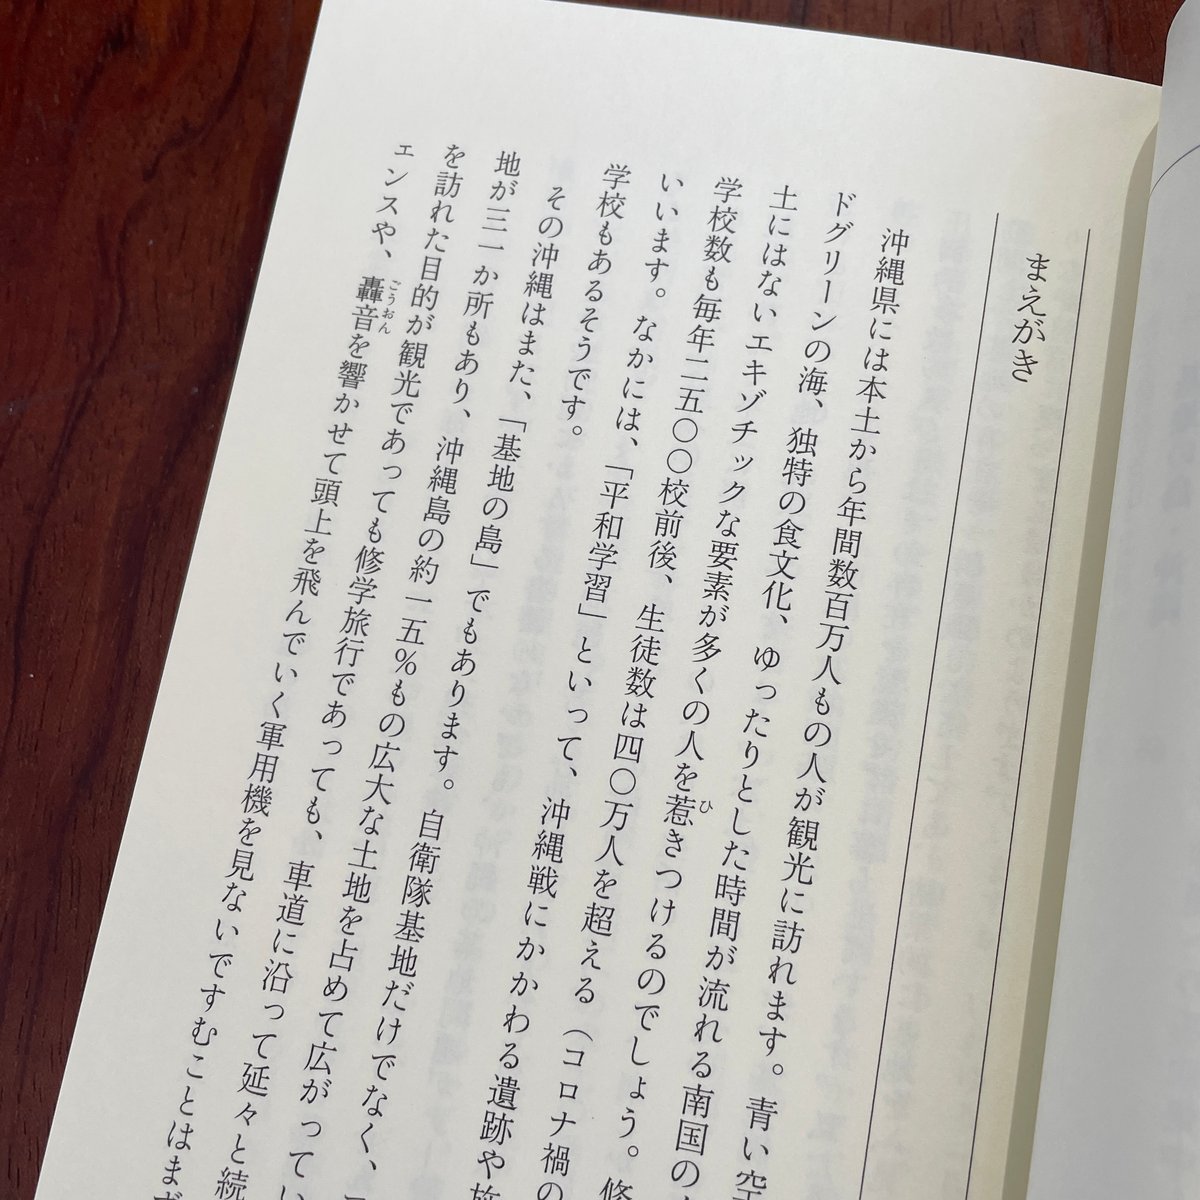 まえがき
沖縄県には本土から年間数百万人もの人が観光に訪れます。青い空
ドグリーンの海、独特の食文化、ゆったりとした時間が流れる南国の
土にはないエキゾチックな要素が多くの人を惹きつけるのでしょう。修
学校数も毎年二五〇〇校前後、生徒数は四〇万人を超える（コロナ禍の
いいます。なかには、「平和学習」といって、沖縄戦にかかわる遺跡や
学校もあるそうです。
その沖縄はまた、「基地の島」でもあります。自衛隊基地だけでなく、
地が三一か所もあり、沖縄島の約一五％もの広大な土地を占めて広がってい
を訪れた目的が観光であっても修学旅行であっても、車道に沿って延々と続
ェンスや、轟音を響かせて頭上を飛んでいく軍用機を見ないですむことはまず
ひ
ごうおん